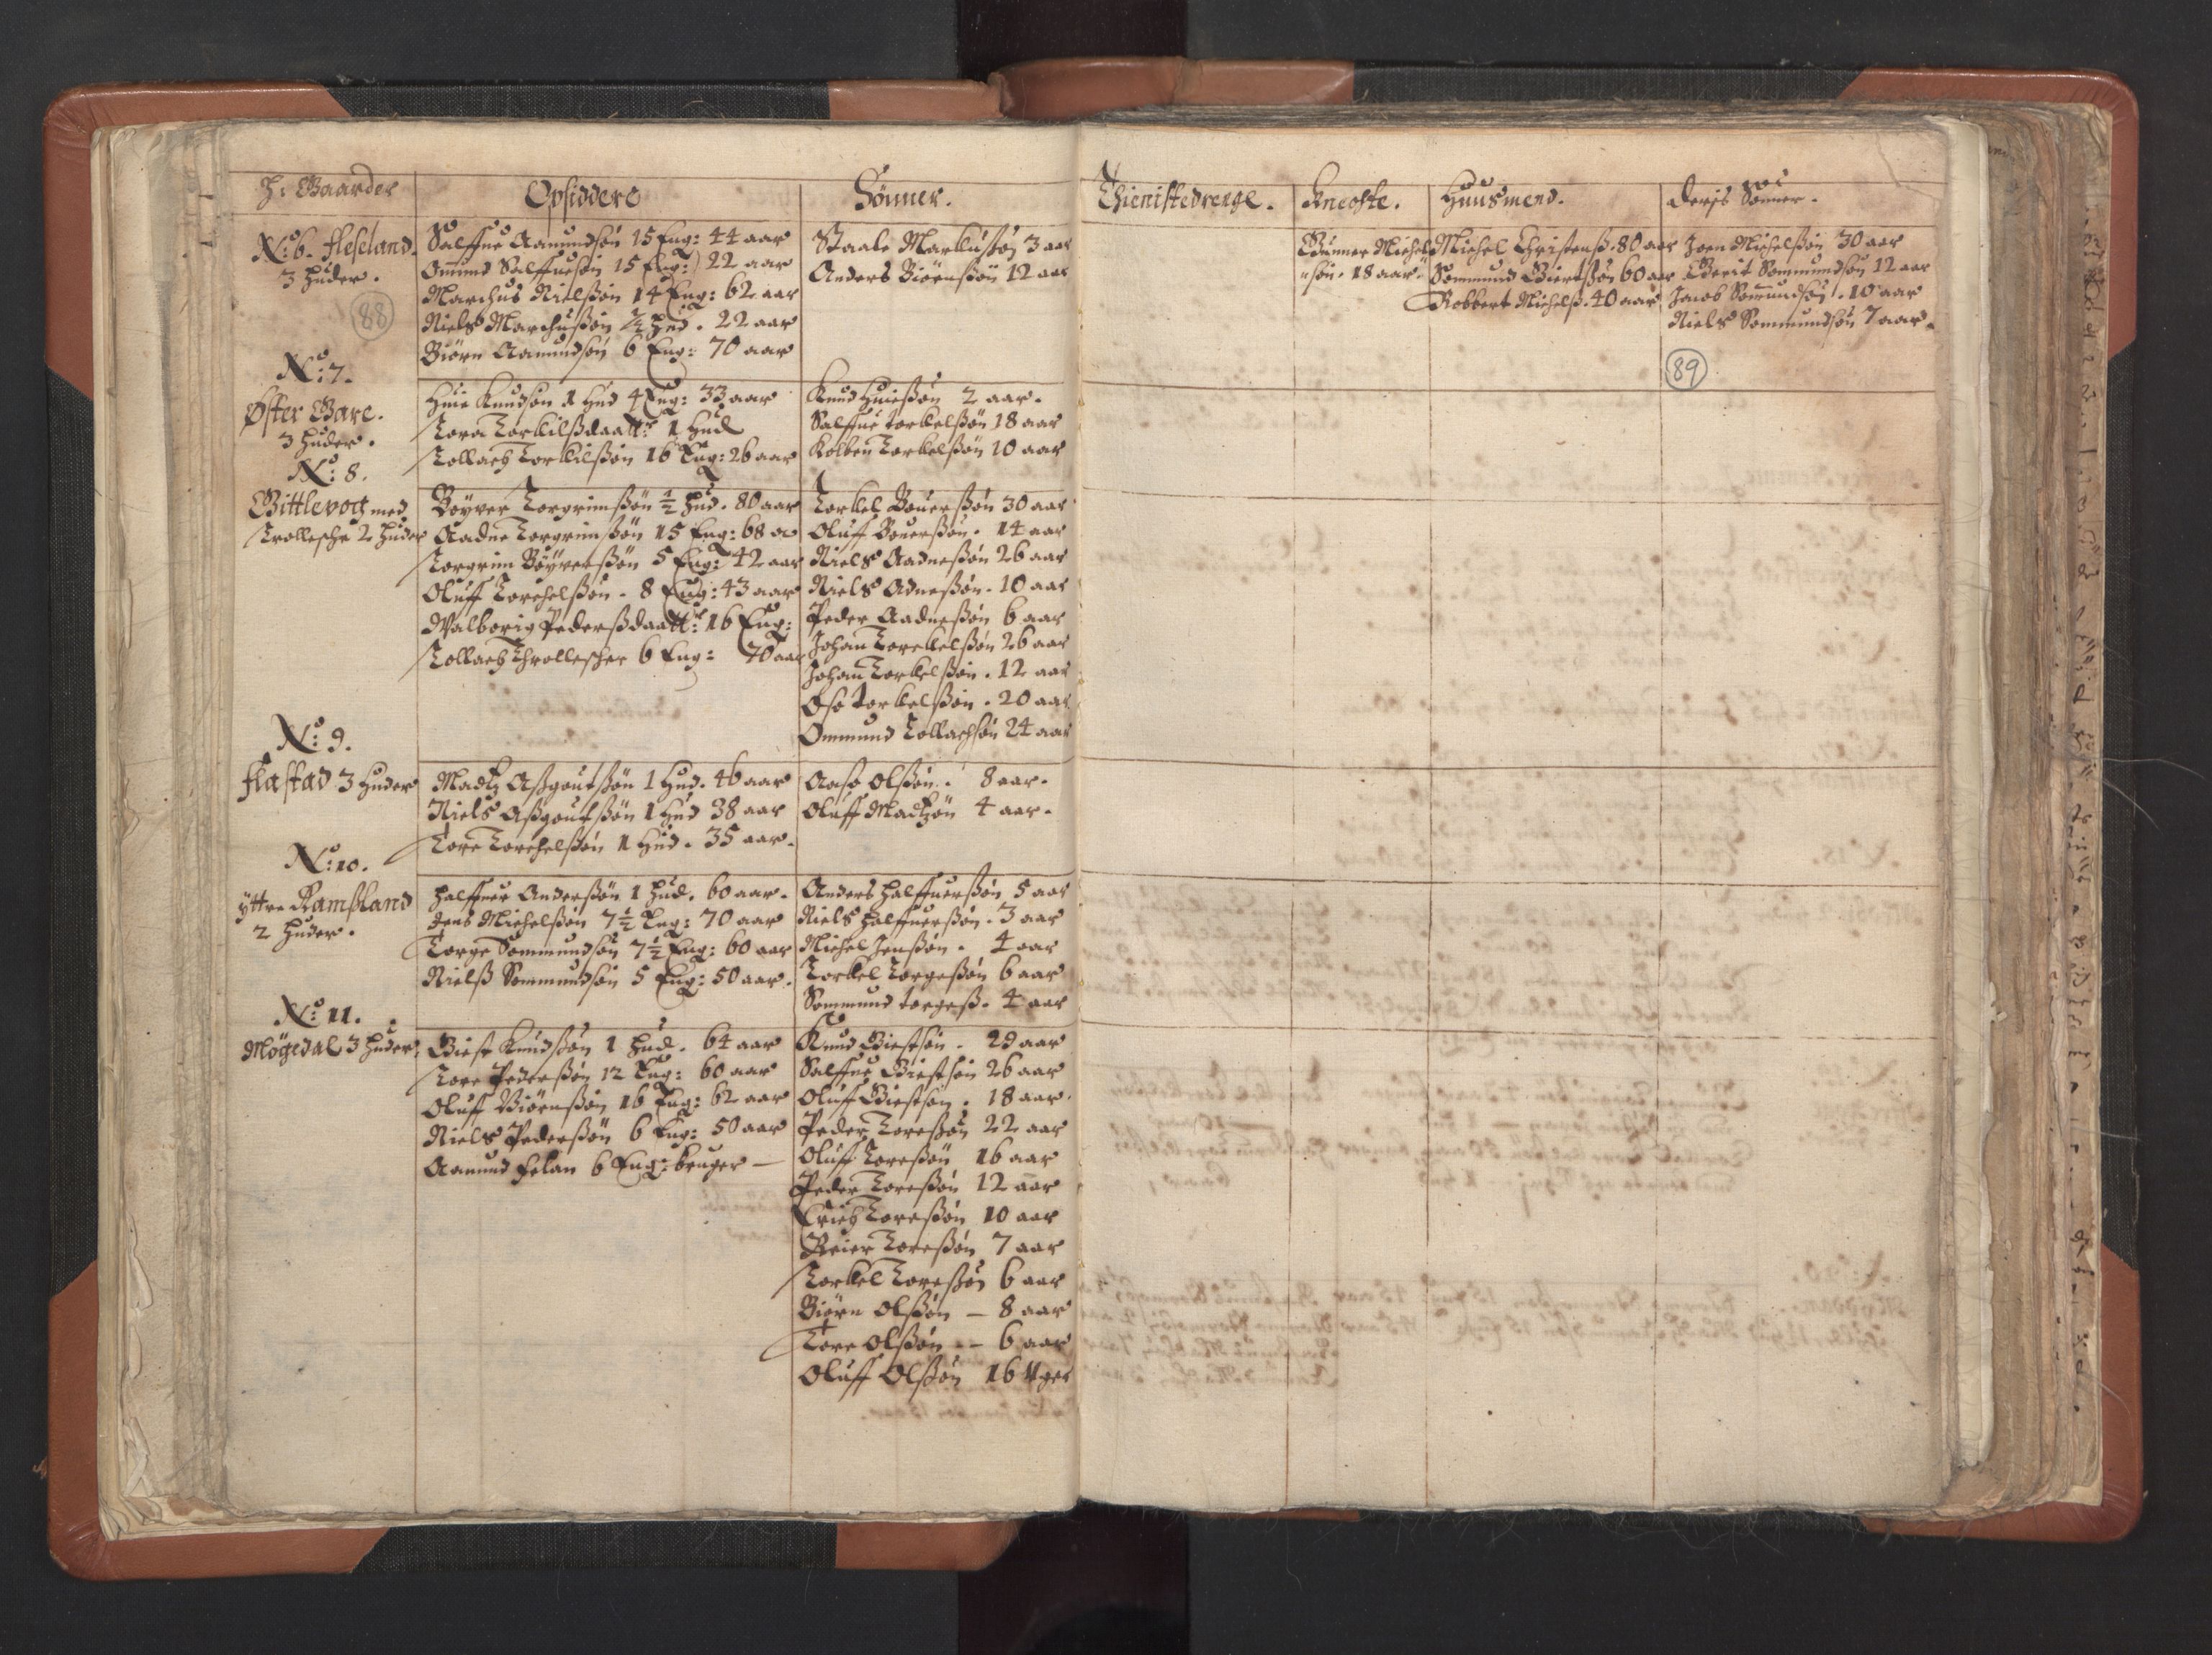 H: Gaarder
Opsiddere
Sønner.
Thienistedrenge.
Knechte.
Huusmend.
Deris Sønner.
No: 6. Fleseland.
3 huder.
88
Salffue Aamundsøn 15 Eng: 44 aar
Omund Salffuesøn 15 Eng: 22 aar
Marchus Nielsøn 14 Eng: 62 aar
Niels Marchussøn ½ Hud. 22 aar
Biørn Aamundsøn 6 Eng: 70 aar
Staale Markussøn 3 aar
Anders Biørnsøn 12 aar
Gunner Michel
søn. 18 aar
Michel Christenss. 80 aar
Sommund Giertssøn 60 aar
Robbert Michelss. 40 aar
Joen Michelssøn 30 aar
Berit Sommundsøn 12 aar
Jacob Sommundsøn. 10 aar
Niels Sommundsøn 7 aar.
89
No: 7.
Øster Bare.
3 huder.
Huie Knudsøn 1 Hud 4 Eng: 33 aar
Tora Torkilssdaatt: 1 Hud
Tollach Torkilssøn 16 Eng: 26 aar
Knud Huiessøn 2 aar.
Salffue torkelssøn 18 aar
Kolben Torkelssøn 10 aar
No: 8.
Gittlevog med
Trollesche 2 huder
Böyver Torgrimssøn ½ Hud. 80 aar
Aadne Torgrimssøn 15 Eng: 68 a
Torgrim Böyverssøn 5 Eng: 42 aar
Oluff Torchelssøn. 8 Eng: 43 aar
Walborig Pederssdaatt: 16 Eng:
Tollach Throllescher 6 Eng: 70 aar
Torkel Bouerssøn 30 aar
Oluff Bouerssøn. 14 aar
Niels Aadnessøn 26 aar
Niels Adnessøn. 10 aar
Peder Aadnessøn 6 aar
Johan Torckelssøn 26 aar
Johan Torkelssøn. 12 aar
Osa Torkelssøn. 20 aar
Ommund Tollachsøn 24 aar
No: 9.
Flastad 3 Huder
Madtz Assgoutssøn 1 Hud. 46 aar
Niels Assgoutssøn 1 Hud 38 aar
Tore Torchelssøn 1 Hud. 35 aar.
Aase Olssøn. 8 aar.
Oluff Madtzøn 4 aar.
No: 10.
ÿttre Ramssland
2 huder.
Halffuer Anderssøn 1 Hud. 60 aar.
Jens Michelssøn 7½ Eng: 70 aar
Torge Sommundsøn 7½ Eng: 60 aar
Nielss Sommundsøn 5 Eng: 50 aar.
Anders Halffuerssøn 5 aar
Niels Halffuerssøn. 3 aar
Michel Jenssøn. 4 aar
Torkel Torgessøn 6 aar
Sommund torgess. 4 aar
No: 11.
Mögedal 3 huder
Giest Knudssøn 1 Hud. 64 aar
Tore Pederssøn 12 Eng: 60 aar
Oluff Biørnssøn 16 Eng: 62 aar
Niels Pederssøn 6 Eng: 50 aar
Aamund Felan 6 Eng: bruger —
Knud Giestsøn. 29 aar
Salffue Giestsøn 26 aar
Oluff Giestsøn. 18 aar.
Peder Toressøn 22 aar
Oluff Toressøn 16 aar
Peder Toressøn 12 aar
Erich Toressøn 10 aar
Reier Toressøn 7 aar
Torkel Toressøn 6 aar
Biørn Olssøn — 8 aar
Tore Olssøn — 6 aar
Oluff Olssøn 16 Uger